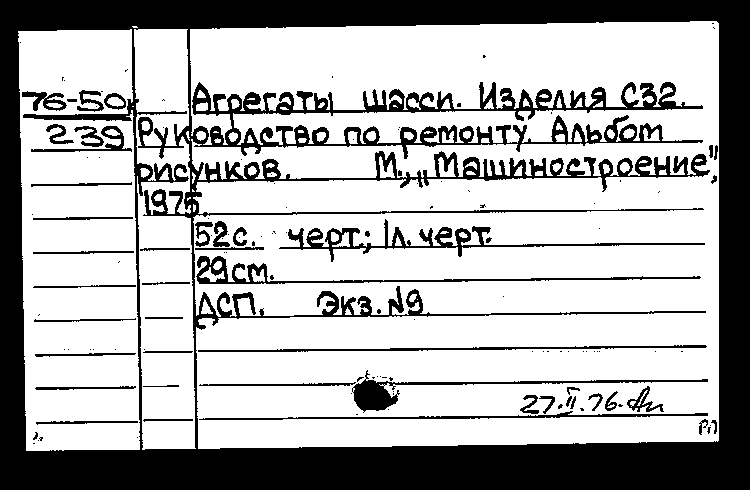 76-50к Агрегаты шасси. Изделия С32.
239 Руководство по ремонту. Альбом
рисунков. М., „Машиностроение",
1975.
52с. черт.; 1л. черт.
29см.
ДСП. Экз. №9.
27.II.76.
РП